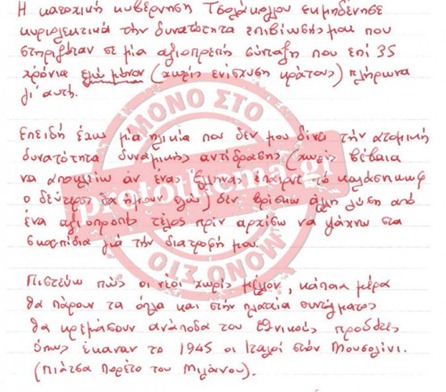 Η κατοχική κυβέρνηση Τσολάκογλου εκμηδένισε
κυριολεκτικά την δυνατότητα επιβίωσής μου που
στηριζόταν σε μία αξιοπρεπή σύνταξη που επί 35
χρόνια εγώ μόνον (χωρίς ενίσχυση κράτους) πλήρωνα
γι' αυτή.
Επειδή έχω μία ηλικία που δεν μου δίνει την ατομική
δυνατότητα δυναμικής αντίδρασης (χωρίς βέβαια
να αποκλείω αν ένας Έλληνας έπαιρνε το καλάσνικωφ
ο δεύτερος θα ήμουν εγώ) δεν βρίσκω άλλη λύση από
ένα αξιοπρεπές τέλος πριν αρχίσω να ψάχνω στα
σκουπίδια για την διατροφή μου.
Πιστεύω πως οι νέοι χωρίς μέλλον, κάποια μέρα
θα πάρουν τα όπλα και στην πλατεία συντάγματος
θα κρεμάσουν ανάποδα τους εθνικούς προδότες
όπως έκαναν το 1945 οι Ιταλοί στον Μουσολίνι.
(Πιάτσα Πορέτο του Μιλάνου).
ΜΟΝΟ ΣΤΟ
protothema.gr
ΜΟΝΟ ΣΤΟ